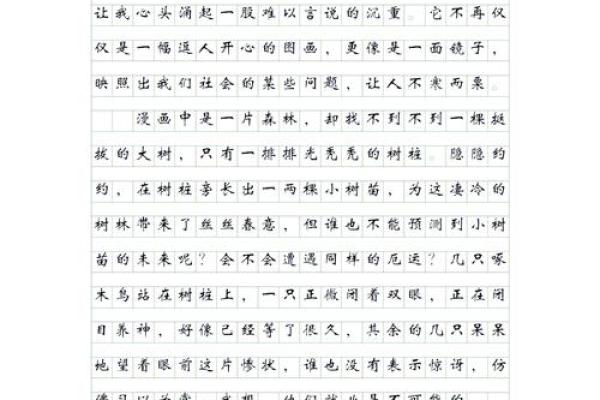 让我心头涌起一股难以言说的沉重。它不再仅
仅是一幅逗人开心的图画，更像是一面镜子，
映照出我们社会的某些问题，让人不寒而栗。
漫画中是一片森林，却找不到不到一棵挺
拔的大树，只有一排排光秃秃的树桩。隐隐约
约，在树桩旁长出一两棵小树苗，为这凄冷的
树林带来了丝丝春意，但谁也不能预测到小树
苗的未来呢？会不会遭遇同样的厄运？几只啄
木鸟站在树桩上，一只正微闭着双眼，正在闭
目养神，好像已经等了很久，其余的几只呆呆
地望着眼前这片惨状，谁也没有表示惊讶，仿